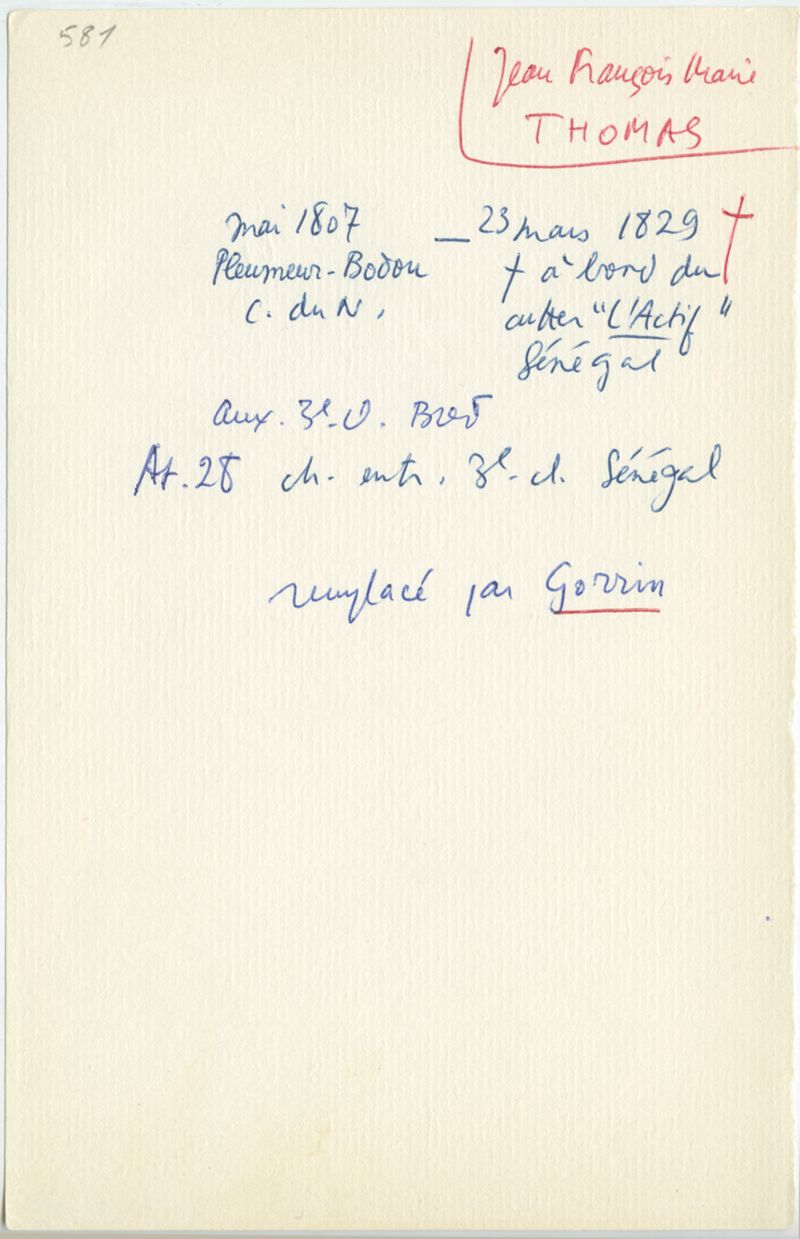 581
Jean François Marie
THOMAS
mai 1807 — 23 mars 1829 †
Pleumeur-Bodou † à bord du
C. du N. cutter "L'Actif"
Sénégal
aux. 3e. cl. Brest
At. 28 ch. entr. 3e. cl. Sénégal
remplacé par Gorrin